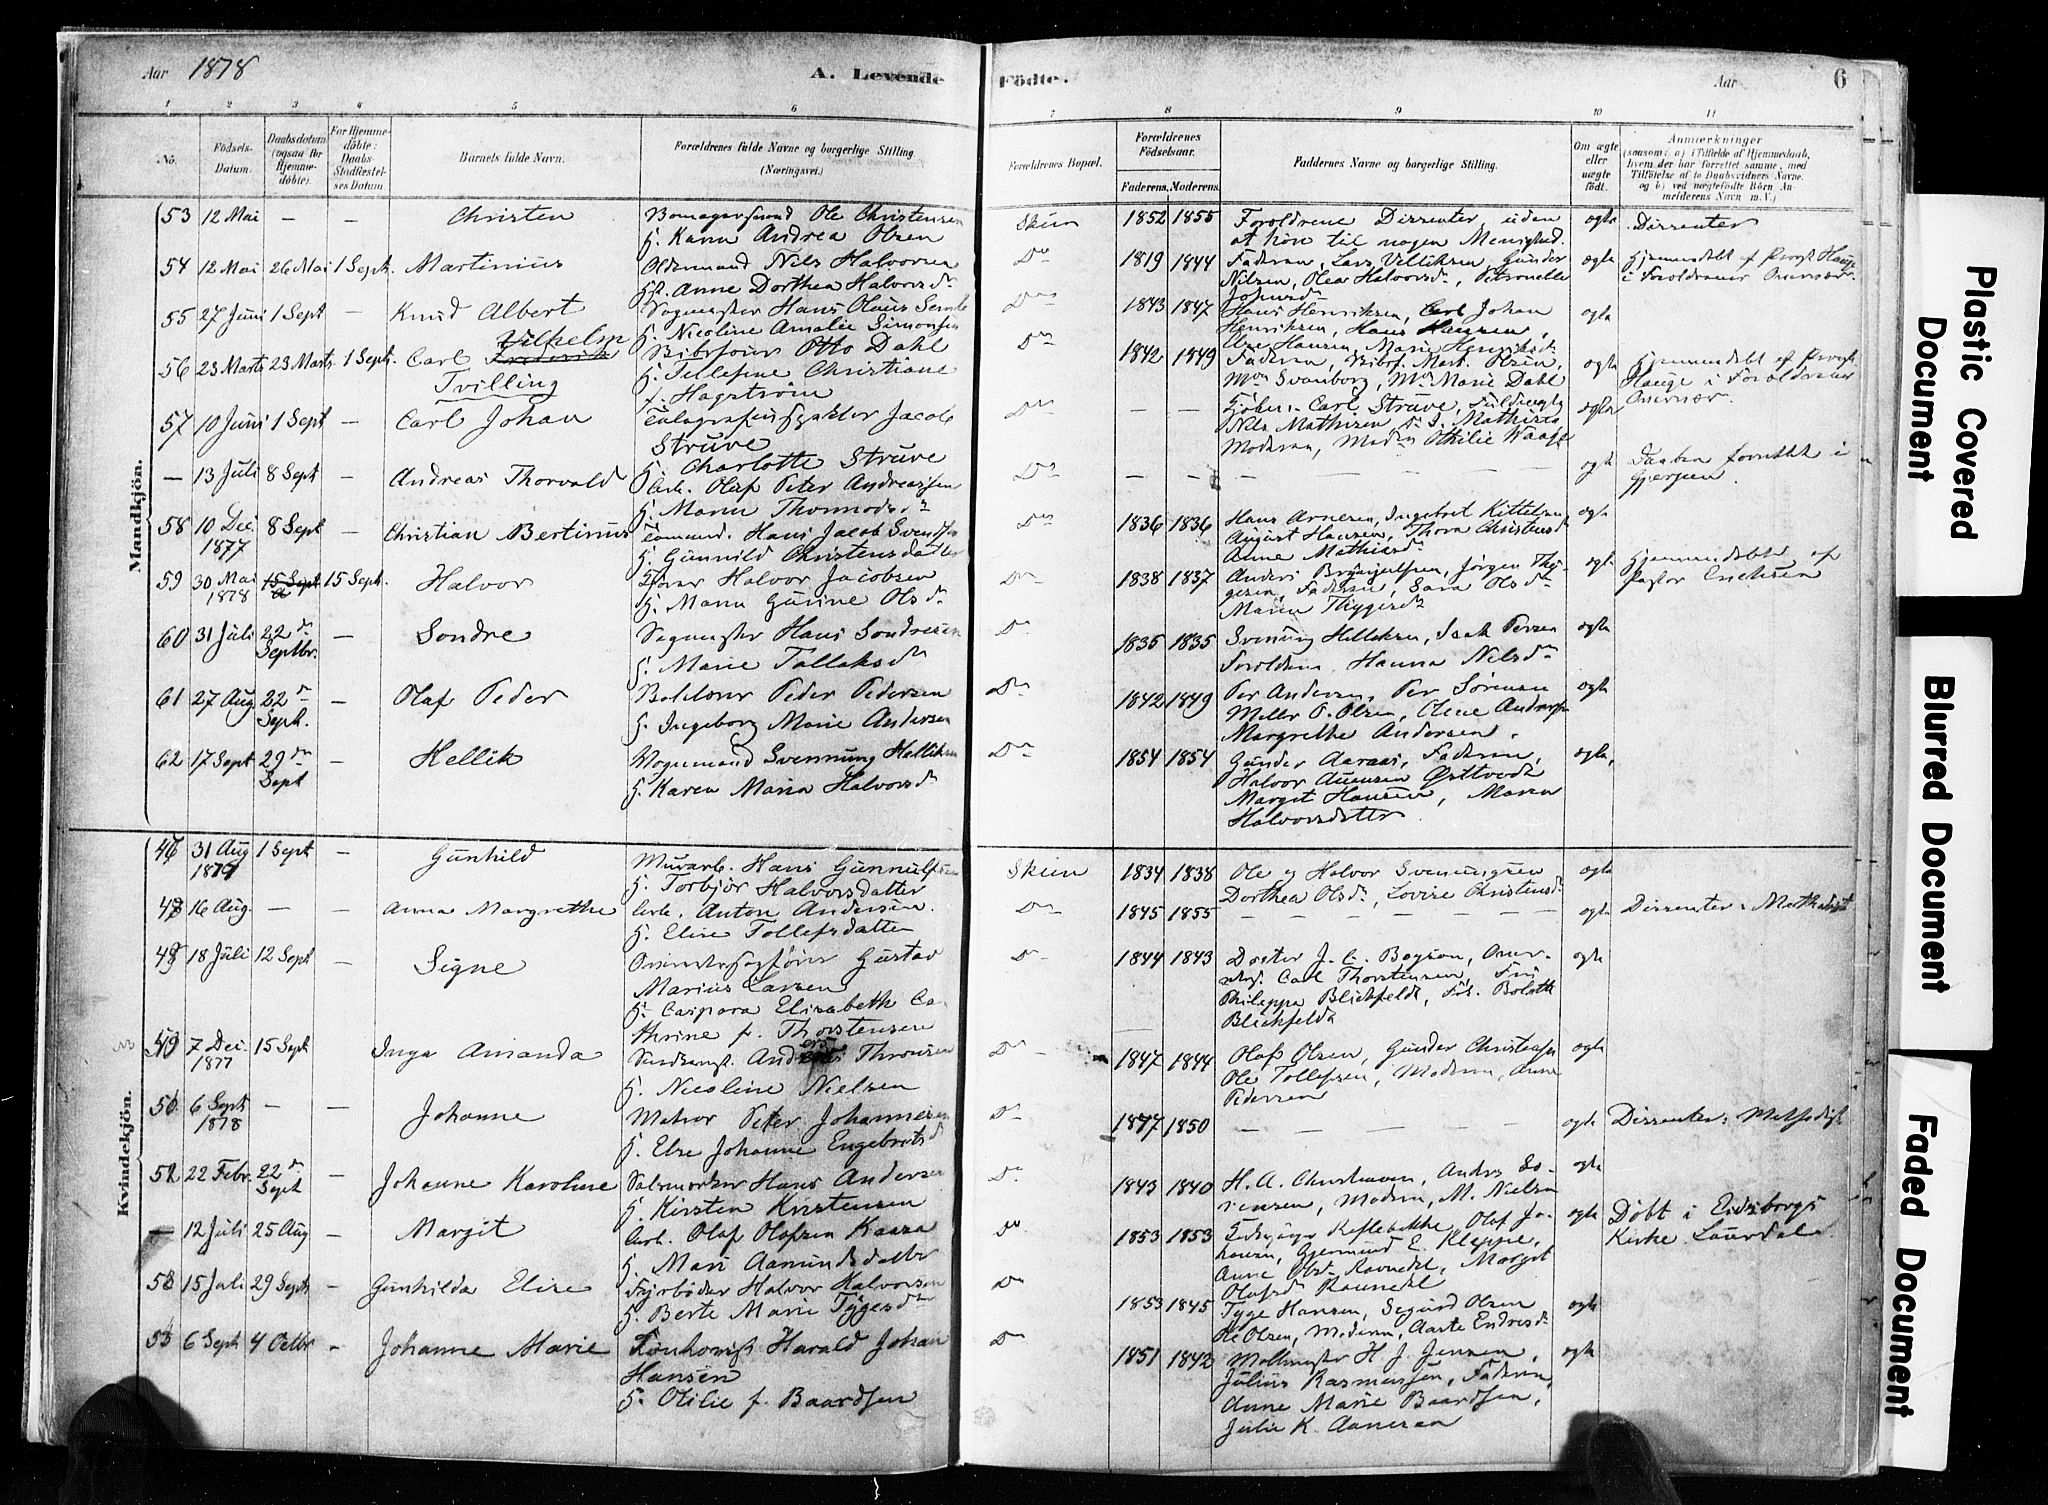 Aar 1878
A. Levende
Födte.
Aar
6
1 2 3 4 5 6 7 8 9 10 11
No.
Födsels-Datum.
Daabsdatum (ogsaa for Hjemmedöbte).
For Hjemmedöbte: Daabs-Stadfæstelses Datum
Barnets fulde Navn.
Forældrenes fulde Navne og borgerlige Stilling (Næringsvei.)
Forældrenes Bopæl.
Forældrenes Födselsaar.
Faderens. Moderens.
Faddernes Navne og borgerlige Stilling.
Om ægte eller uægte födt.
Anmærkninger
(saasom: a) i Tilfælde af Hjemmedaab, hvem der har forrettet samme, med Tilföielse af to Daabsvidners Navne, og b) ved uægtefödte Börn Anmelderens Navn m.V.)
Mandkjön.
53 12 Mai — — Christen
Ole Christensen
H. Karen Andrea Olsen
Skien 1852 1855 Foroldrene Dissenter, uden
at höre til nogen Menighed. ogte Dissenter
54 12 Mai 26 Mai 1 Sept. Martinius
Oldermand Nils Halvorsen
Anne Dorthea Halvorsdr
Do 1819 1844 Faderen, Lars Villiksen, Gunder
Nilsen, Olea Halvorsdr, Petronelle
ogte Hjemmedøbt af Provst Hauge
i Foroldrenes Overvær.
55 27 Juni 1 Sept — Knud Albert
Sogmester Hans Olaus
H. Nicoline Amalie Simonsen
Do 1843 1847 Hans Henriksen, Carl Johan
Henriksen, Hans Hansen,
ogte
56 23 Marts 23 Marts 1 Sept. Carl Frederik Vilhelm
Tvilling
Otto Dahl
H. Christiane
f. Hagström
Do 1842 1849 Faderen, Olsen,
Svanborg, Marie Dahl
ogte Hjemmedøbt af Provst
Hauge i Foroldrenes
Overvær.
57 10 Juni 1 Sept — Carl Johan
Telegrafinspektør Jacob
Struve
H. Charlotte Struve
Do — — Carl Struve,
Nils Mathisen
Moderen, Othilie
ogte
— 13 Juli 8 Sept — Andreas Thorvald
Arb. Olaf Peter Andreassen
H. Maren Thormodsdr
Do — — — ogte Daaben forrettet i
Gjerpen.
58 10 Dec. 1877 8 Sept — Christian Bertinius
Hans Jacob Svendsen
H. Gunnild Christensdatter
Do 1836 1836 Hans Arnesen, Ingebret Kittelsen
August Hansen, Thora Christensdr
Anne Mathisdr
ogte
59 30 Mai 1878 15 Sept 15 Sept. Halvor
Halvor Jacobsen
H. Maren Gurine Olsdr
Do 1838 1837 Anders Brynjulfsen, Jørgen Thygesen, Faderen, Sara Olsdr
Maren Thygesdr
ogte Hjemmedøbt af
Pastor Erichsen
60 31 Juli 22de Septbr. — Sondre
Sogmester Hans Sondresen
H. Marie Tallaksdr
Do 1835 1835 Svenung Helliksen, Isak
Foroldrene, Hanna Nilsdr
ogte
61 27 Aug. 22de Sept. — Olaf Peder
Peder Pedersen
H. Ingeborg Marie Andersen
Do 1842 1849 Per Andersen, Per Sørensen
Møller P. Olsen,
Margrethe Andersen.
ogte
62 17 Sept 29de Sept — Hellik
Vognmand Svennung Helliksen
H. Karen Maria Halvorsdr
Do 1854 1854 Gunder Aaraas, Faderen,
Halvor Østtvedt
Margit Hansen, Maren
Halvorsdatter.
ogte.
Kvindekjön.
46 31 Aug 1877 1 Sept — Gunhild
Murarb. Hans Gunnulfsen
H. Torbjør Halvorsdatter
Skien 1834 1838 Ole og Halvor Svenungsen
Dorthea Olsdr, Lovise Christensdr
ogte
47 16 Aug. — — Anna Margrethe
Arb. Anton Andersen.
H. Elise Tollefsdatter
Do 1845 1855 — — — ogte Dissenter: Methodist
48 18 Juli 12 Sept — Signe
Overretssagfører Gustav
Marius Larsen
H. Caspara Elisabeth Cathrine f. Thorstensen
Do 1844 1843 Doctor J. C. Bøyson,
Carl Thorstensen, Fru
Philippa Blichfeldt, Frk. Bolette
Blichfeldt
ogte
49 7 Dec. 1877 15 Sept — Inga Amanda
Thronsen
H. Nicoline Nielsen
Do 1847 1844 Olaf Olsen, Gunder Christensen
Ole Tollefsen, Moderen, Anne
Pedersen
ogte
50 6 Sept 1878 — — Johanne
Matros Peter Johannesen
H. Else Johanne Engebretsdr
Do 1847 1850 — — — ogte Dissenter: Methodist
51 22 Febr. 22de Sept — Johanne Karoline
Hans Andersen
H. Kirsten Kristensen
Do 1843 1840 H. A. Christensen, Anders Sorensen, Moderen, M. Nielsen
ogte
— 12 Juli 25 Aug — Margit
Arb. Olaf Olafsen Kaasa
H. Mari Aamundsdatter
Do 1853 1853 Olaf Johansen, Gjermund E. Kleppe,
Anne Olsdr Ravnedal, Margit
Olafsdr Ravnedal
ogte Døbt i Eidsborgs
Kirke Laurdal.
15 Juli 29 Sept — Gunhilda Elise
Fyrbøder Halvor Halvorsen
H. Berte Marie Tygesdr
Do 1853 1845 Tyge Hansen, Sigurd Olsen
Ole Olsen, Moderen, Aaste Endresdr
ogte
53 6 Sept 4 Octbr — Johanne Marie
Harald Johan
Hansen
H. Otilie f. Baardsen
Do 1851 1842 H. J. Jensen,
Julius Rasmussen, Faderen,
Anne Marie Baardsen,
Julie K. Aanesen
ogte
Plastic Covered Document
Blurred Document
Faded Document